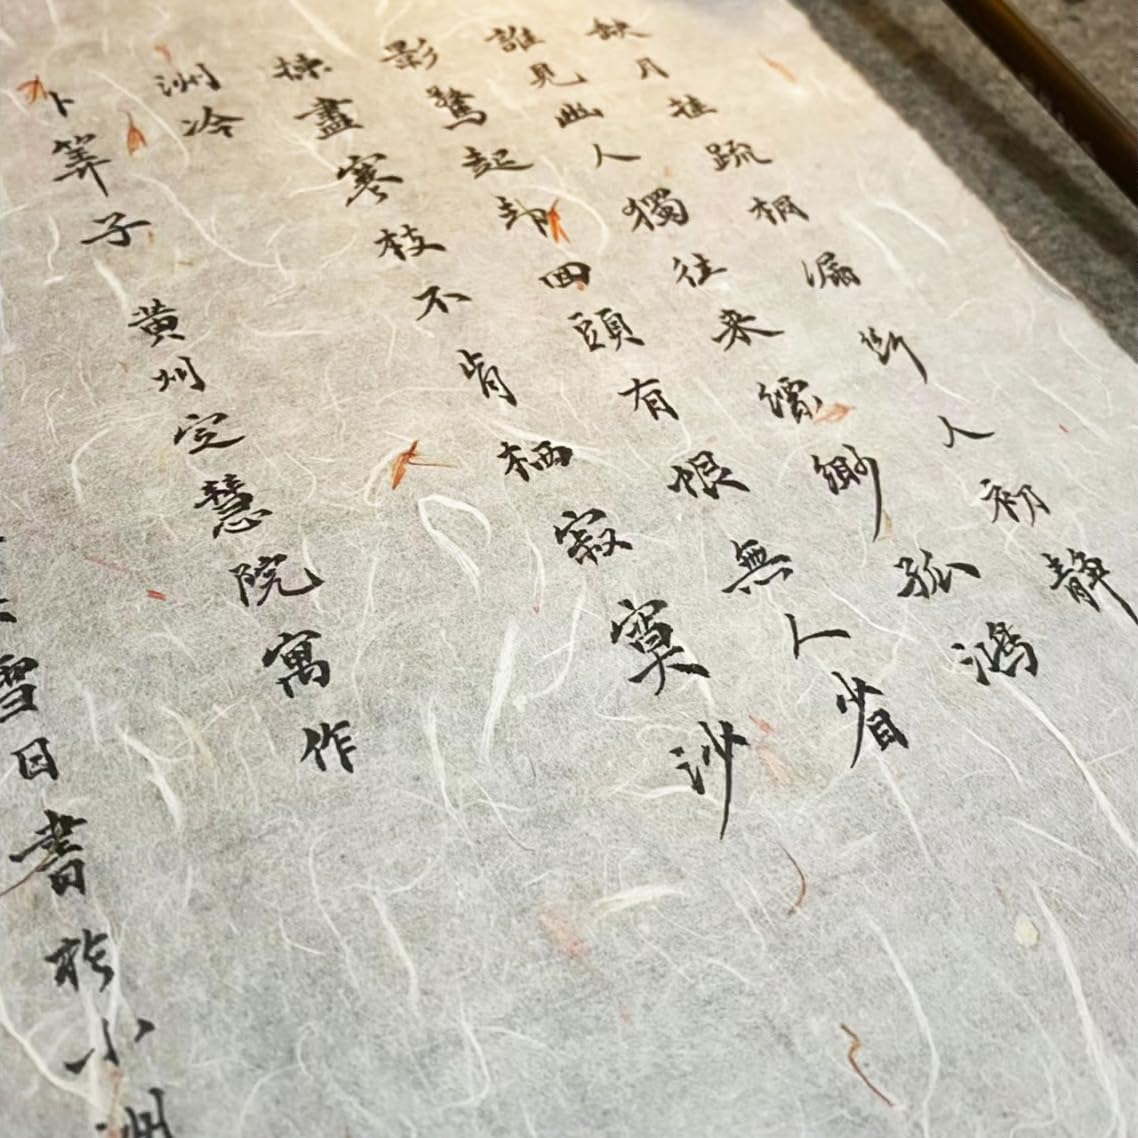 缺月挂疏桐漏断人初静
誰見幽人獨往来縹緲孤鴻
影驚起却回頭有恨無人省
揀盡寒枝不肯栖寂寞沙
洲冷
卜筭子 黄州定慧院寓作
雪日書於小洲